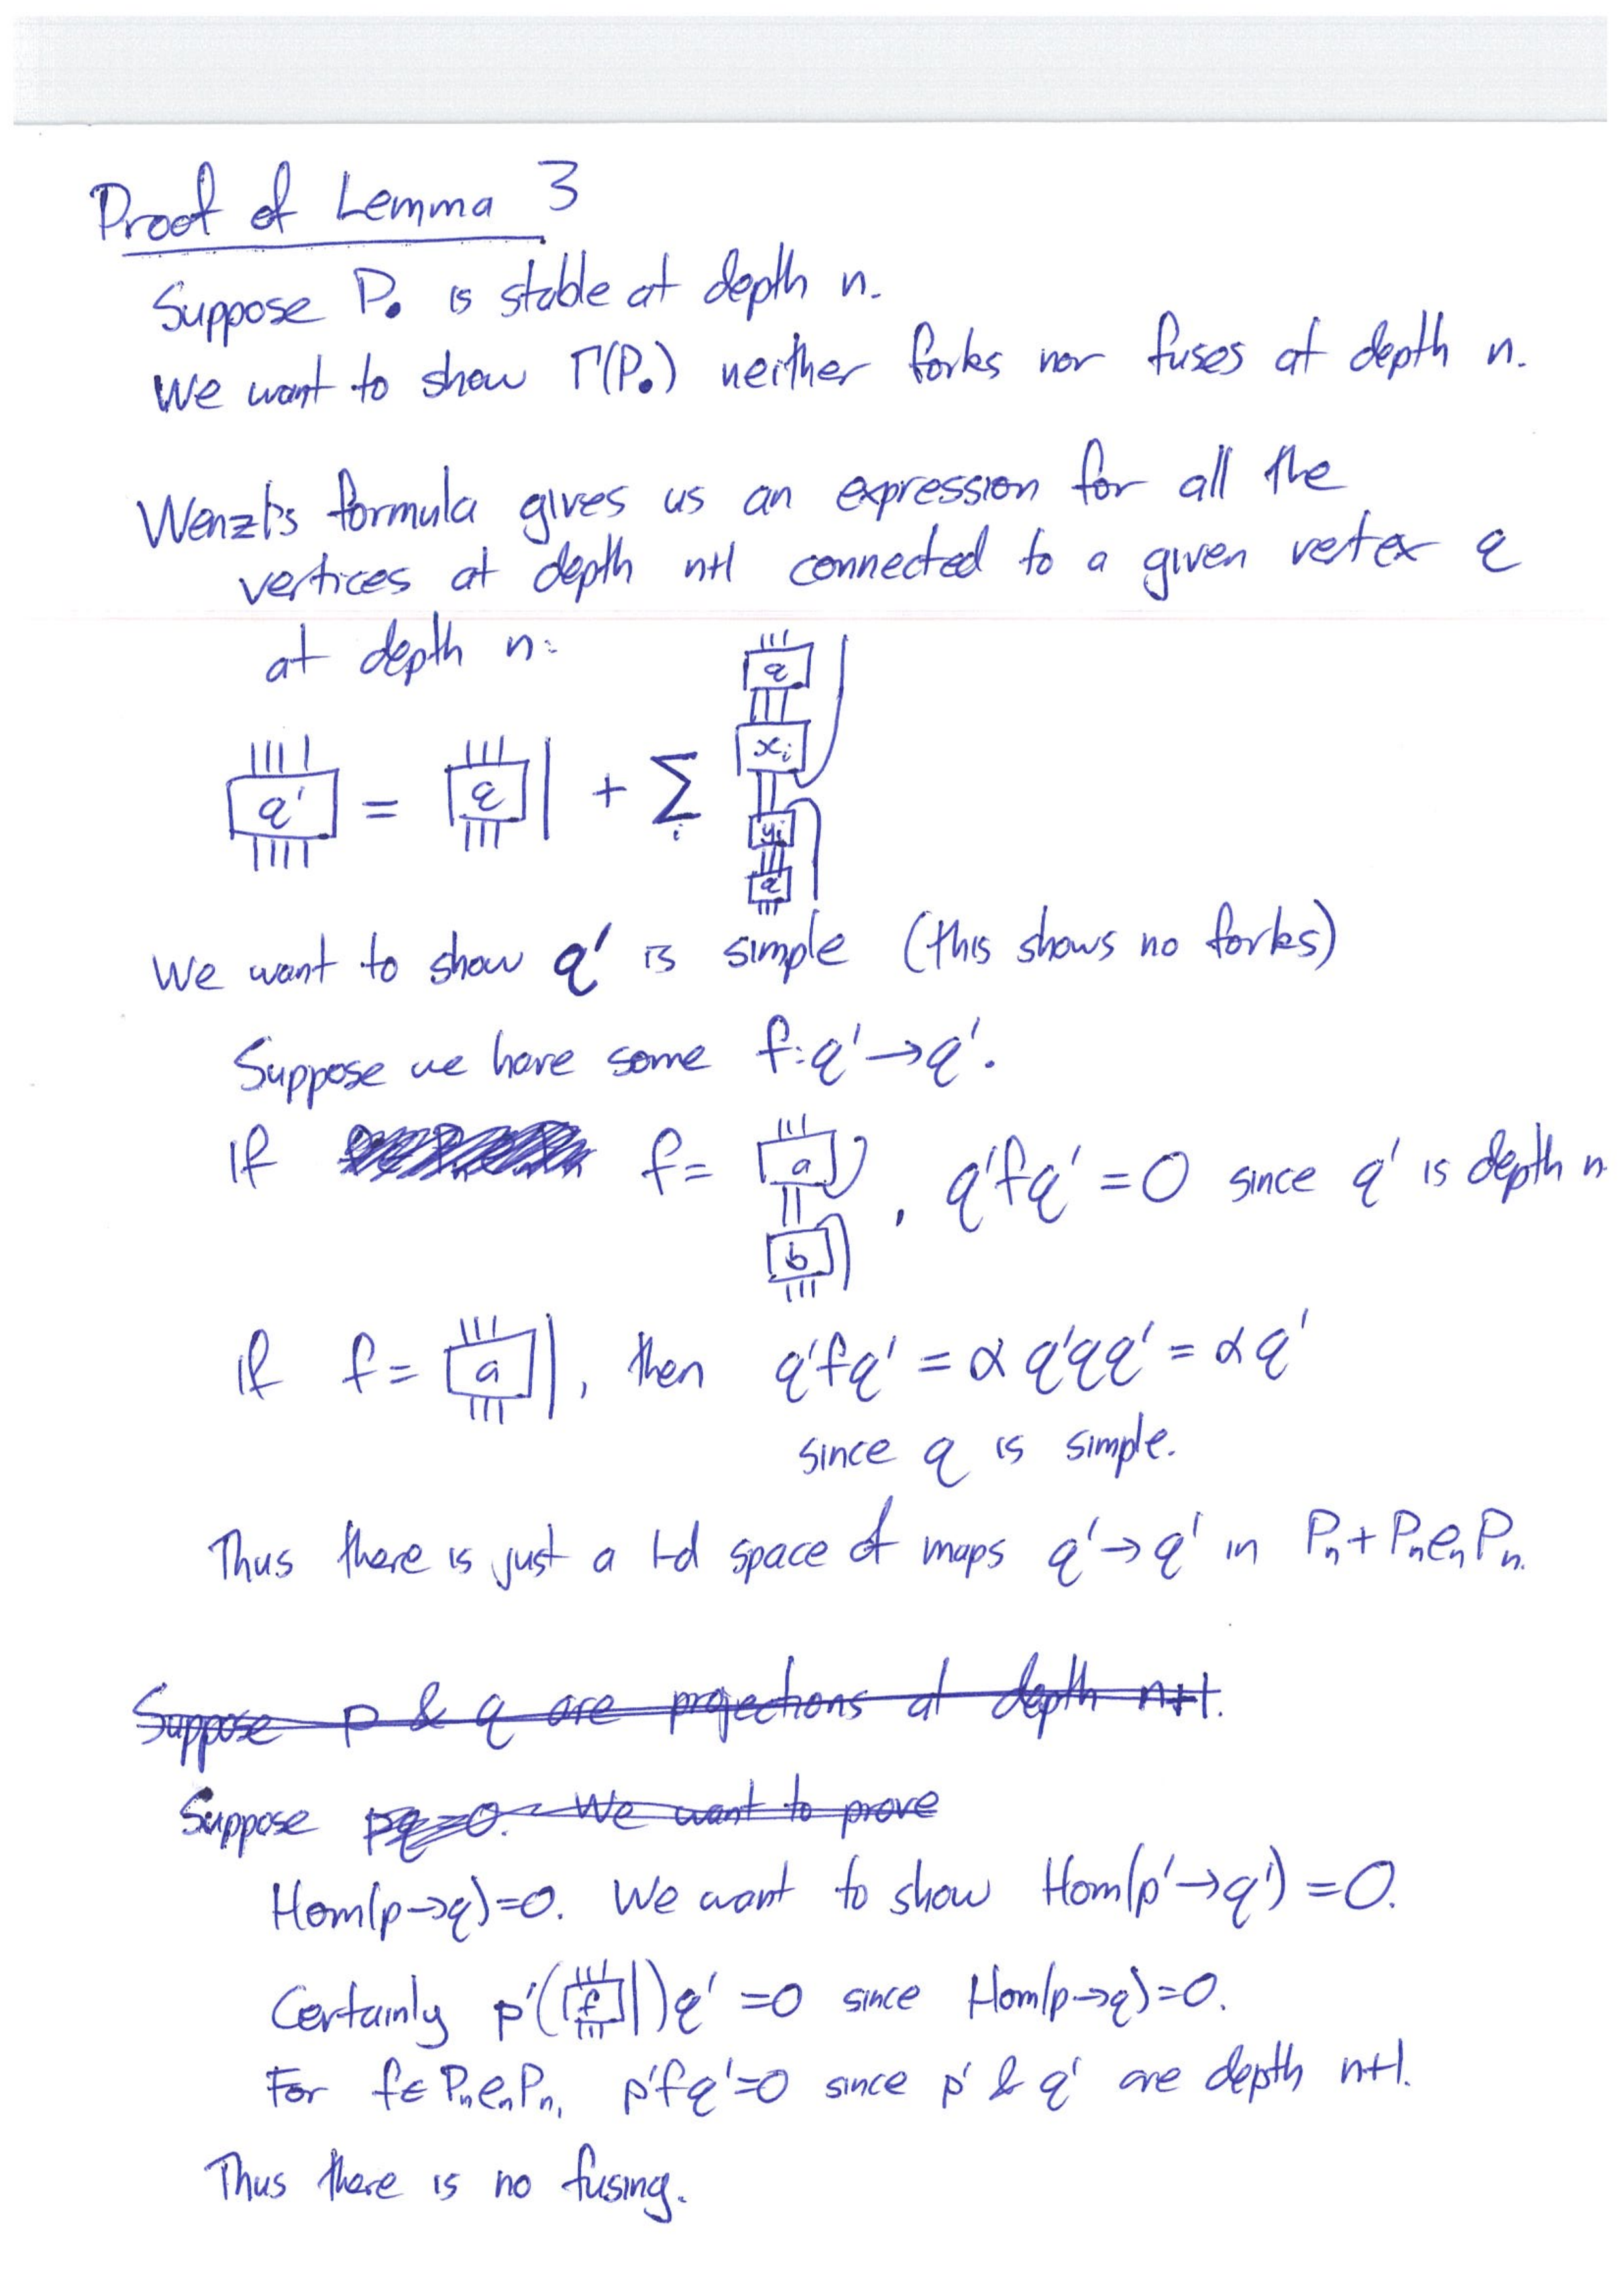 Proof of Lemma 3
Suppose P• is stable at depth n.
We want to show Γ(P•) neither forks nor fuses at depth n.
Wenzl's formula gives us an expression for all the
vertices at depth n+1 connected to a given vertex q
at depth n:
q' = q + Σ_i q x_i y_i q
We want to show q' is simple (this shows no forks)
Suppose we have some f: q' → q'.
If f = a b , q'fq' = 0 since q' is depth n
If f = a , then q'fq' = α q'qq' = α q'
since q is simple.
Thus there is just a 1-d space of maps q' → q' in Pₙ + PₙeₙPₙ.
Suppose p & q are projections at depth n+1.
Suppose pq=0. We want to prove
Hom(p→q)=0. We want to show Hom(p'→q') = 0.
Certainly p'(f)q' = 0 since Hom(p→q)=0.
For f ∈ PₙeₙPₙ, p'fq'=0 since p' & q' are depth n+1.
Thus there is no fusing.